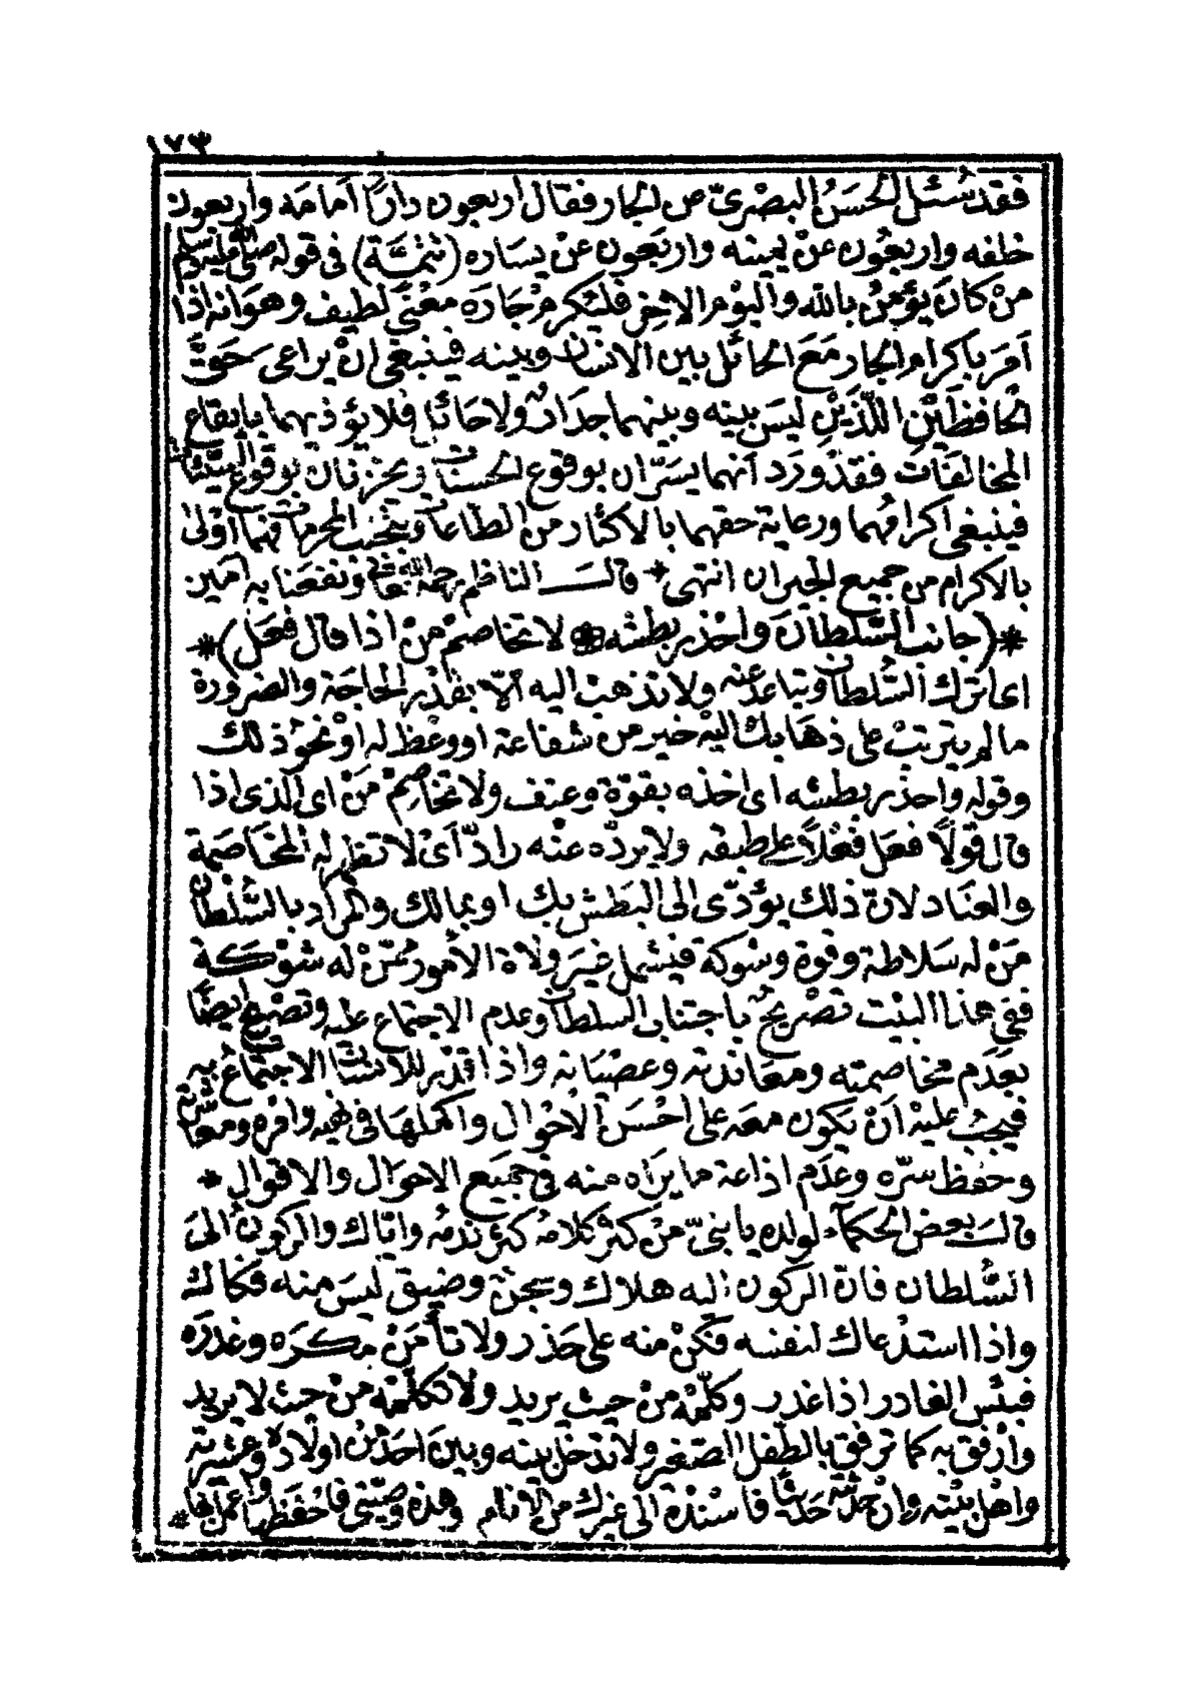 ١٧٣
فقد سُئل الحسَنُ البصْرىّ عن الجار فقال اربعون دارًا اَمامَه واربعون
خلفه واربعُون عنْ يمينه واربَعون عنْ يسَاره (تتمَّة) فى قوله صلى الله عليه وسلم
منْ كانَ يؤمنُ بالله واليوْم الاخِر فليُكرمْ جَارَه معْنًى لطيف وهوَانه اذا
اَمَر باكرام الجار مَعَ الحائل بين الانسَان وبينه فينبغى انْ يراعى حَقَّ
الحَافظَيْنِ اللّذَيْنِ ليسَ بينه وبينهما جدَارٌ ولا حَائل فلا يؤذيهما بايقاع
المخالفَات فقدْ ورَد اَنهما يسَرّان بوقوع الحسنات ويحزنان بوقوع السيّئات
فينبغى اكرامُهما ورعاية حقهما بالاكثار من الطاعات وتجنب المحرمات فهما اَوْلىٰ
بالاكرام من جميع الجيران انتهى * قالـــ الناظم رحمه الله تعالى ونفعَنا به اَمين
*(جانب السّلطانَ واحْذر بطشه * لا تخاصمْ منْ اذا قال فَعَل)*
اى اترك السُّلطان وتباعدْ عنه ولا تذهبْ اليه الاّ بقدْر الحاجَة والضرورة
ما لم يترتبْ على ذهَابك اليْه خير من شفاعة اووعْظ له اوْ نحْو ذلك
وقوله واحذر بطشه اى اخذه بقوّة وعنف ولا تخاصِمْ مَنْ اى الذى اذا
قال قولًا فعَل فعْلاً على طبقه ولا يردّه عنْه رادّ اَىْ لا تظهر له المخَاصَمة
والعنَاد لانّ ذلك يؤدّى الى البَطْش بك او بمالك والمرَاد بالسُّلطان
مَنْ له سَلاطة وقوة وشوكة فيشمل غيَر ولاة الاُمور ممّنْ له شوْكة
ففى هذا البيْت تصْريحٌ باجتناب السلطان وعدم الاجتماع عليه وتصْريح ايضًا
بعَدَم مخاصمته ومعَاندته وعصْيَانه واذا قدّر للانسَان الاجتمَاعُ به
فيجبُ عليْه اَنْ يَكون معَه على احْسَن الاحْوال واكملها فى نهْيه وامْره ومعَاشرَته
وحفظ سرّه وعدَم اذاعة ما يرَاه منه فى جميَع الاحوَال والاقوال *
قالـَ بعض الحكمَاء لولده يا بنىّ منْ كثرَ كلامُه كثرَ ندمُه وايّاك والركونَ الىَ
السُّلطان فانّ الركون اليه هلاك وسجنٌ وضيق ليسَ منه فكاك
واذا استدْعاك لنفسه فكنْ منه على حَذر ولا تأمَنْ مكرَه وغدرَه
فبئس الغادر اذا غدر وكلّمْه منْ حيث يريد ولا تكلّمْه منْ حيث لا يريد
وارْفق به كما ترفق بالطّفل الصّغير ولا تدْخل بينه وبين احَد منْ اولاده وعشيرته
واهْل بيْته وانْ حدّثته حَديثا فاسْندْه الى غيرك من الانام وهذه وصيّتى فاحْفَظها واعمَل بها *